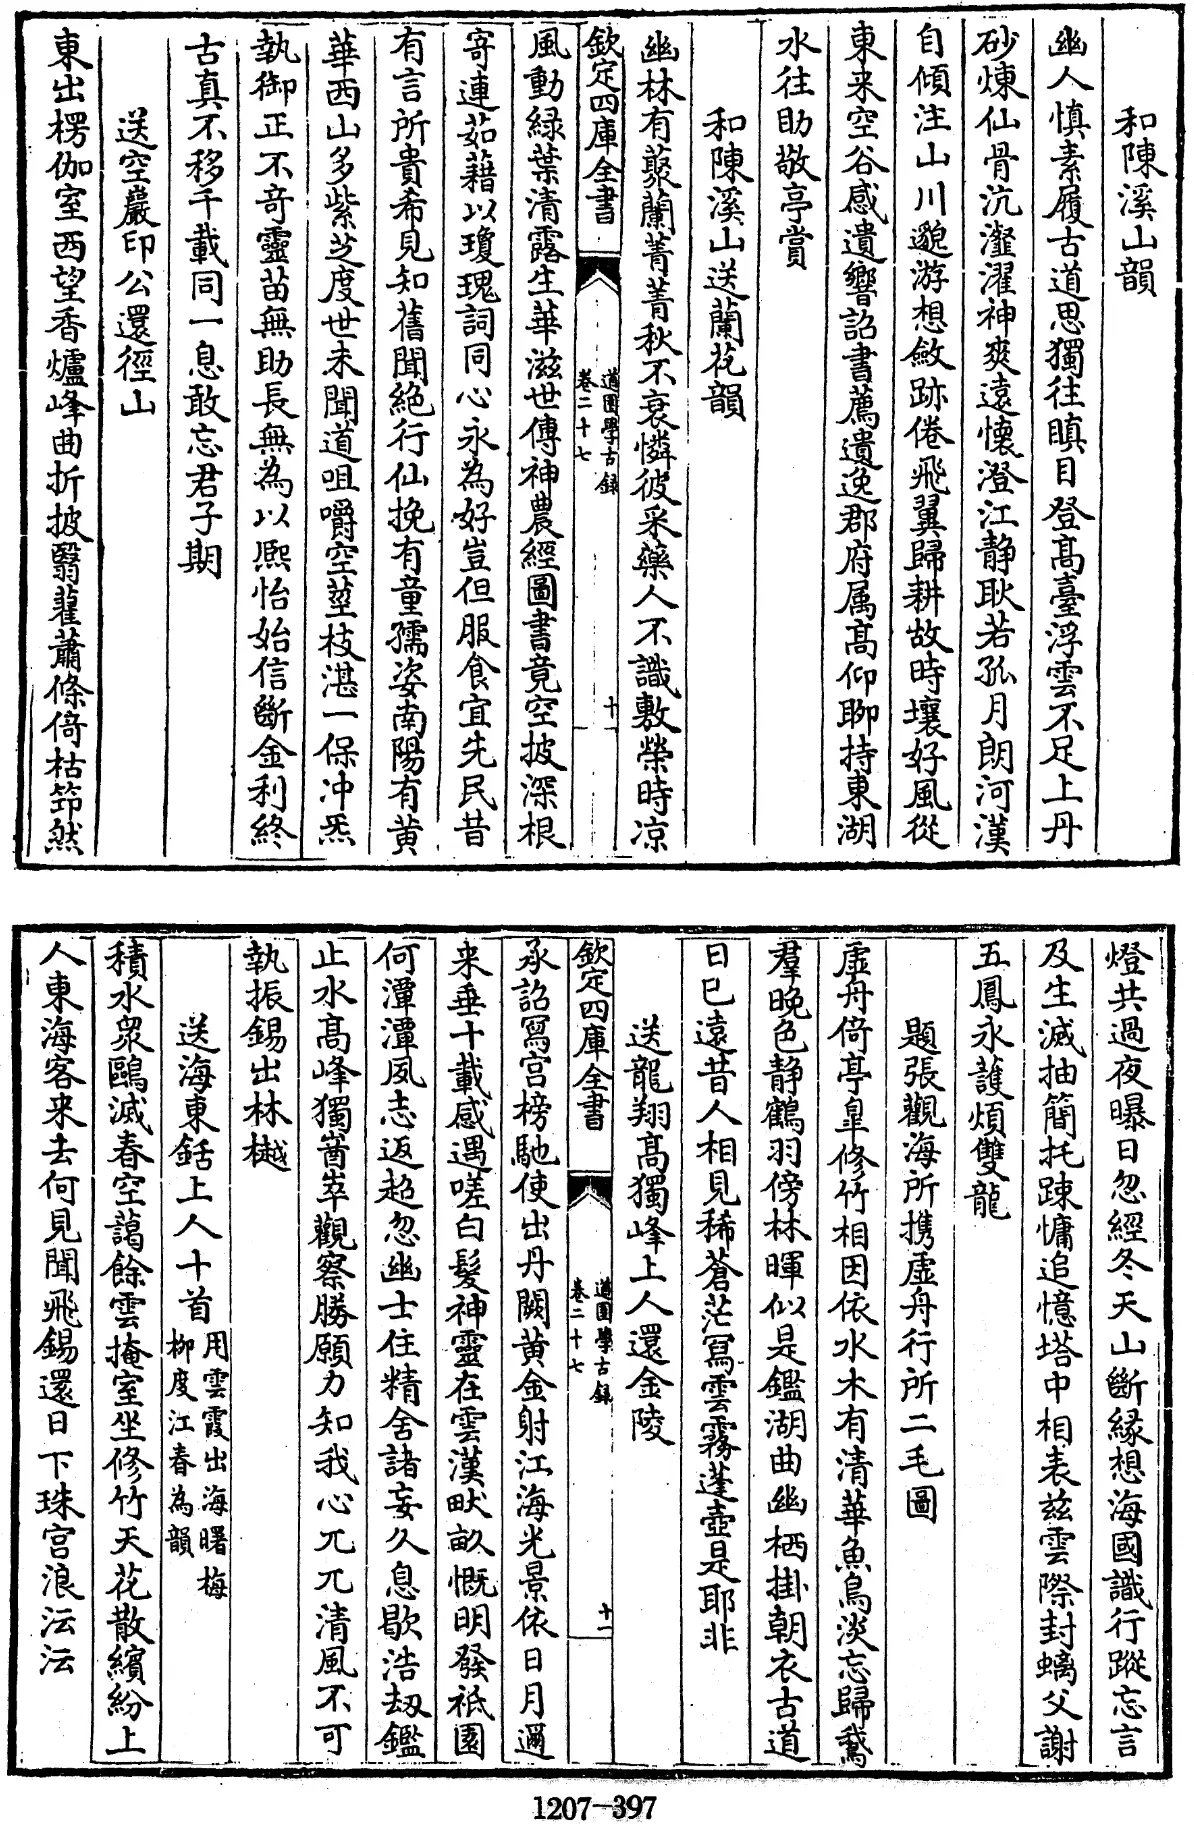 和陳溪山韻
幽人慎素履古道思獨往瞋目登髙臺浮雲不足上丹
砂煉仙骨沆瀣濯神爽遠懷澄江静耿若孤月朗河漢
自傾注山川邈游想斂跡倦飛翼歸耕故時壤好風從
東来空谷感遺響詔書薦遺逸郡府属髙仰聊持東湖
水往助敬亭賞
和陳溪山送蘭花韻
幽林有藂蘭菁菁秋不衰憐彼采藥人不識敷榮時凉
欽定四庫全書
道園學古録
卷二十七
十
風動緑葉清露生華滋世傳神農經圖書竟空披深根
寄連茹藉以瓊瑰詞同心永為好豈但服食宜先民昔
有言所貴希見知舊聞絶行仙挽有童孺姿南陽有黄
華西山多紫芝度世未聞道咀嚼空莖枝湛一保冲炁
執御正不奇靈苗無助長無為以熙怡始信斷金利終
古真不移千載同一息敢忘君子期
送空巖印公還徑山
東出楞伽室西望香爐峰曲折披翳藋蕭條倚枯笻然
燈共過夜曝日忽經冬天山斷緣想海國識行蹤忘言
及生滅抽簡托踈慵追憶塔中相表兹雲際封螭父謝
五鳳永護煩雙龍
題張觀海所携虚舟行所二毛圖
虚舟倚亭皐修竹相因依水木有清華魚鳥淡忘歸鵞
羣晚色静鶴羽傍林暉似是鑑湖曲幽栖掛朝衣古道
日已遠昔人相見稀蒼茫冩雲霧蓬壺是耶非
送龍翔髙獨峰上人還金陵
欽定四庫全書
道園學古録
卷二十七
十一
承詔冩宫榜馳使出丹闕黄金射江海光景依日月邇
来垂十載感遇嗟白髮神靈在雲漢畎畝慨明發祗園
何潭潭夙志返超忽幽士住精舍諸妄久息歇浩刼鑑
止水髙峰獨崷崒觀察勝願力知我心兀兀清風不可
執振錫出林樾
送海東銛上人十首用雲霞出海曙梅
柳度江春為韻
積水衆鷗滅春空藹餘雲掩室坐修竹天花散繽紛上
人東海客来去何見聞飛錫還日下珠宫浪沄沄
1207-397